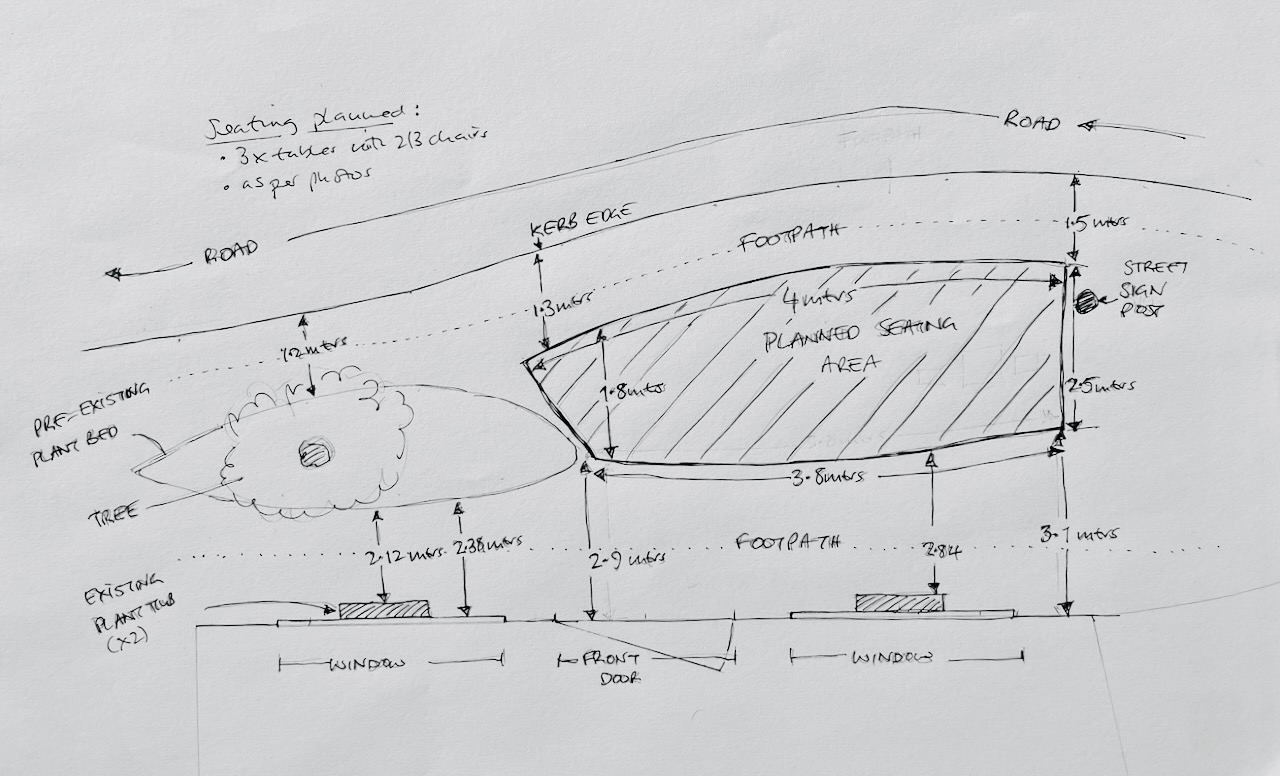 Seating planned:
• 3x tables with 2/3 chairs
• as per photos
ROAD
FOOTPATH
KERB EDGE
FOOTPATH
1.5 mtrs
ROAD
STREET
SIGN
POST
1.3 mtrs
4 mtrs
PLANNED SEATING
AREA
1.2 mtrs
1.8 mtrs
2.5 mtrs
PRE-EXISTING
PLANT BED
3.8 mtrs
TREE
2.12 mtrs
2.38 mtrs
2.9 mtrs
FOOTPATH
2.84
3.1 mtrs
EXISTING
PLANT TUB
(X2)
WINDOW
FRONT
DOOR
WINDOW